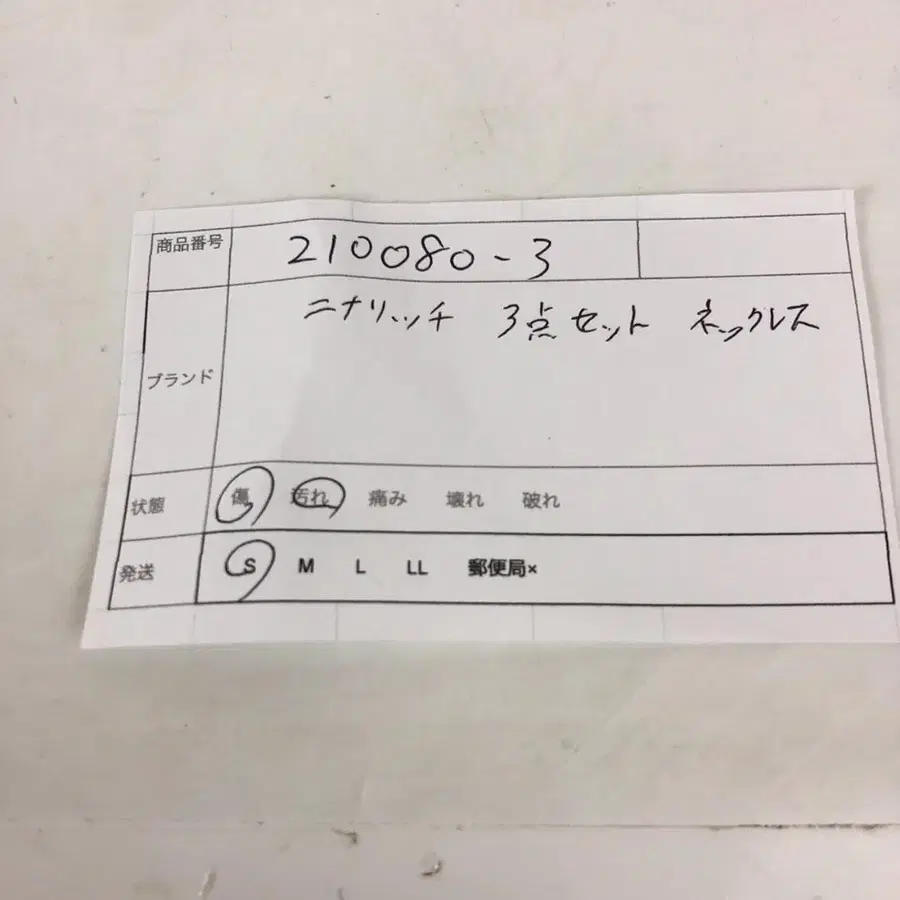 商品番号 210080-3
ニナリッチ 3点セット ネックレス
ブランド
状態 傷 汚れ 痛み 壊れ 破れ
発送 S M L LL 郵便局×